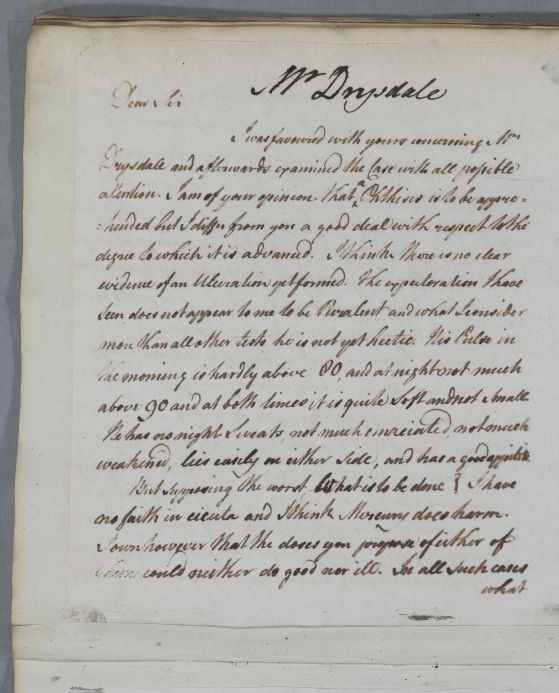 Mr Drysdale
Dear Sir
I was favoured with yours concerning Mr
Drysdale and afterwards examined the Case with all possible
attention. I am of your opinion that a Phthisis is to be appre=
=hended but I differ from you a good deal with respect to the
degree to which it is advanced. I think there is no clear
evidence of an Ulceration yet formed. The expectoration I have
seen does not appear to me to be Purulent and what I consider
more than all other tests he is not yet hectic. His Pulse in
the morning is hardly above 80, and at night not much
above 90 and at both times it is quite Soft and not Small
He has no night Sweats, not much emaciated, not much
weakened, lies easily on either Side, and has a good appetite
But Supposing the worst, What is to be done? I have
no faith in cicuta and I think Mercury does harm.
I own however that the doses you propose of either of
them could neither do good nor ill. In all Such cases
what